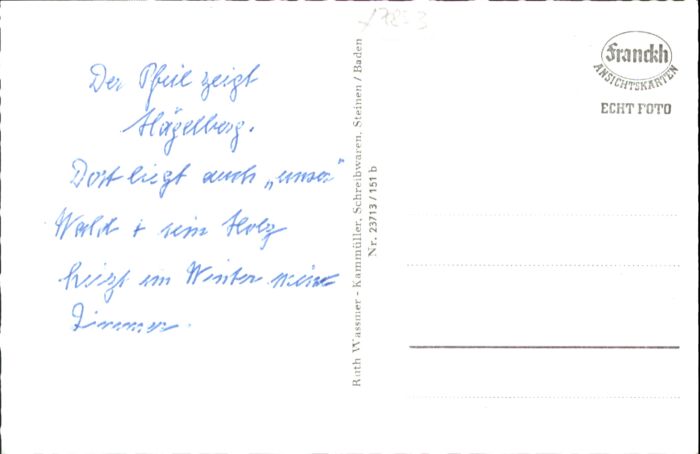 Der Pfeil zeigt
Hägelberg.
Dort liegt auch „unser"
Wald + sein Holz
heizt im Winter mein
Zimmer.
Ruth Wassmer - Kammüller, Schreibwaren, Steinen / Baden
Nr. 23713 / 151 b
Franckh
ANSICHTSKARTEN
ECHT FOTO